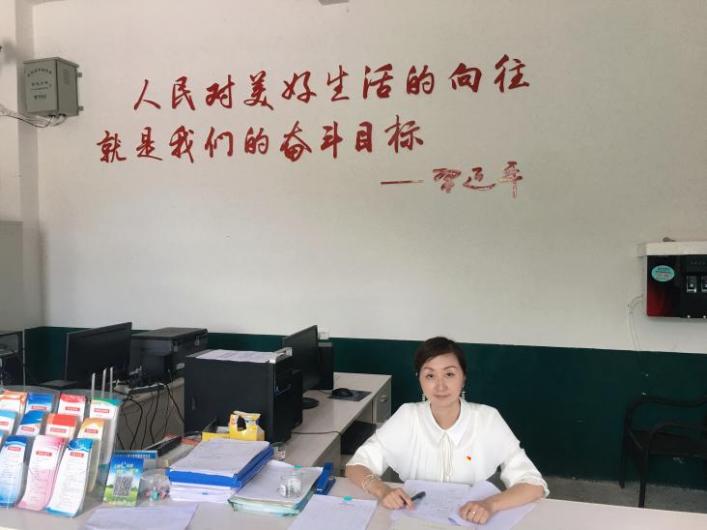 人民对美好生活的向往
就是我们的奋斗目标
——习近平